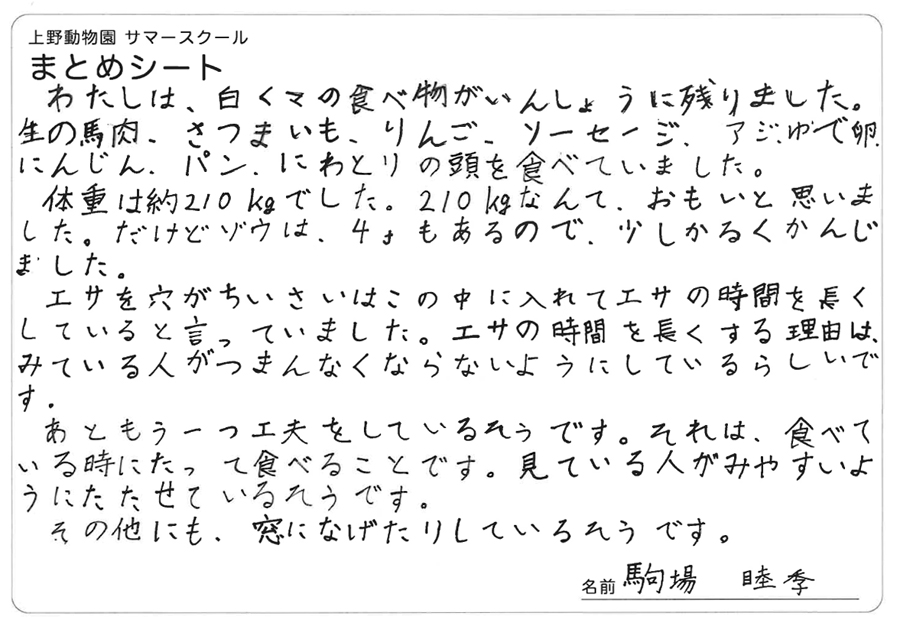 上野動物園 サマースクール
まとめシート
わたしは、白くマの食べ物がいんしょうに残りました。
生の馬肉、さつまいも、りんご、ソーセージ、アジ、ゆで卵、
にんじん、パン、にわとりの頭を食べていました。
体重は約210kgでした。210kgなんて、おもいと思いま
した。だけどゾウは、4tもあるので、少しかるくかんじ
ました。
エサを穴がちいさいはこの中に入れてエサの時間を長く
していると言っていました。エサの時間を長くする理由は、
みている人がつまんなくならないようにしているらしいで
す。
あともう一つ工夫をしているそうです。それは、食べて
いる時にたって食べることです。見ている人がみやすいよ
うにたたせているそうです。
その他にも、窓になげたりしているそうです。
名前 駒場 睦季